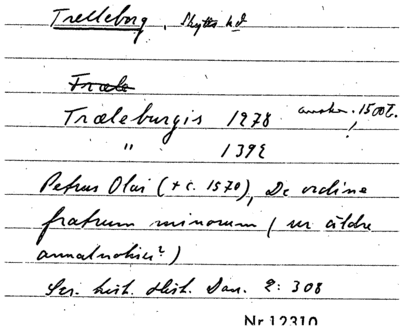 Trelleborg, Skytts hd
Træle
Træleburgis 1278 avskr. 1500t.!
" 1392
Petrus Olai (+ c. 1570), De ordine
fratrum minorum (ur äldre
annalnotiser?)
Scr. hist. Dan. 2: 308
Nr 12310